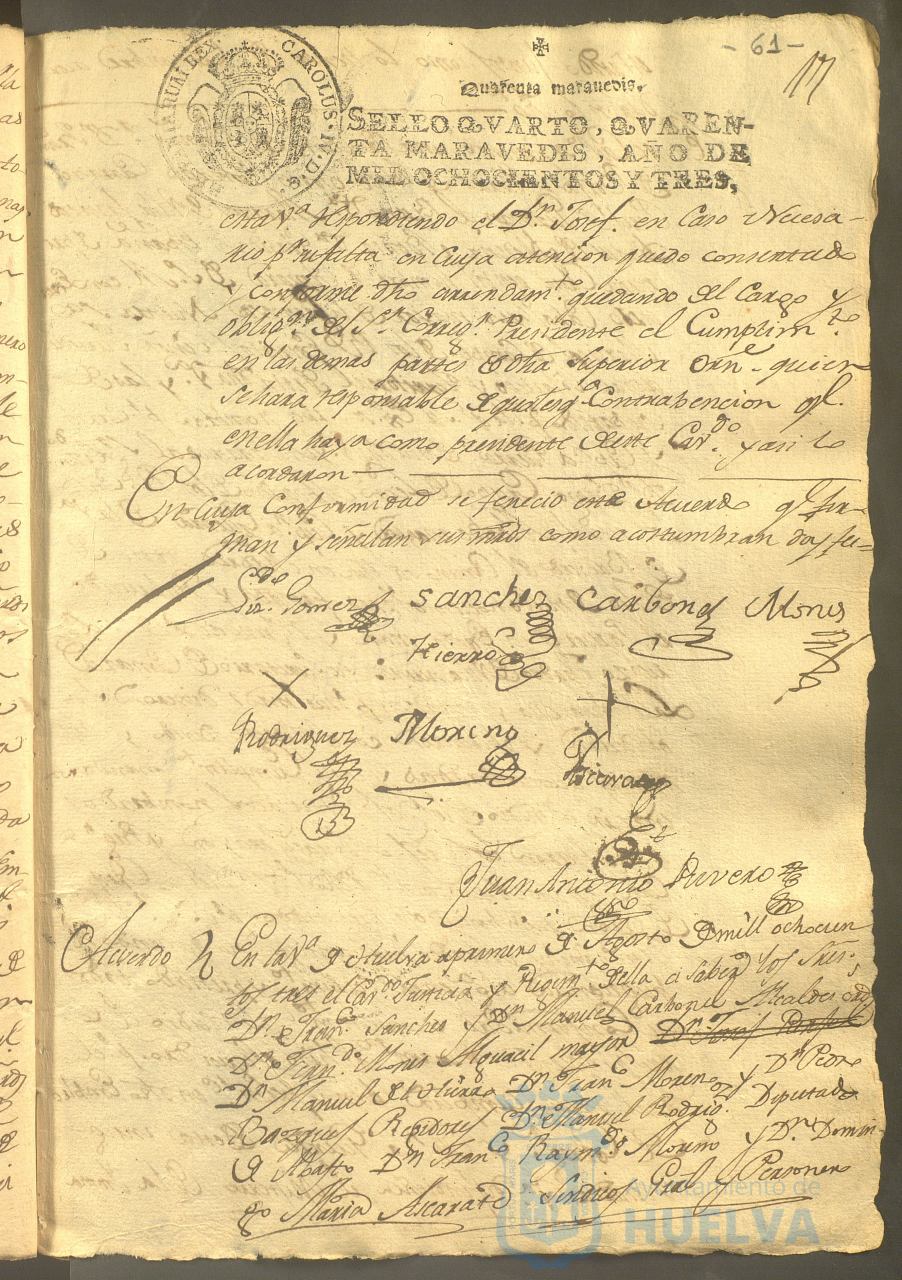 - 61 -
Quarenta marauedis.
CAROLUS. IV. D. G.
SELLO QVARTO, QVAREN-
TA MARAVEDIS, AÑO DE
MIL OCHOCIENTOS Y TRES,
esta va. respondiendo el Dn. Josef. en Caso Necesa-
rio pr. su falta en Cuya atencion quedo consentado
y conforme dho arrendamto. quedando del Cargo y
obligon. del Sr. Corregr. Presidente el Cumplimto.
en las demas partes de dha Superior Orne. quien
se hara responsable de qualesqa. Contrabencion ql.
en ella haya como presidente de este Cavdo. y asi lo
acordaron
En Cuya Conformidad se fenecio este Acuerdo ql fir-
man y señellan sus mrds como acostumbran doy fee
Lizdo. Gomez Sanchez Carbonel Mones
Hierro
Rodriguez Moreno
Juan Antonio Rivero
Acuerdo En la va. de Huelva a primero de Agosto de mill ochocien
tos tres el Cavdo. Justicia y Regimto. della a saber los Sres.
Dn. Franco. Sanchez y Dn Manuel Carbonel Alcaldes ords
Dn. Ferndo. Mones Alguacil mayor Dn. Josef
Dn Manuel de el Hierro Dn. Franco. Moreno y Dn. Pedro
Bazquez Rexidores Dn. Manuel Rodrigz. Diputado
de Abasto Dn Franco Raymdo. Moreno y Dn. Domin-
go Maria Alcarat Sindicos Gral y Personero
Ayuntamiento de
HUELVA